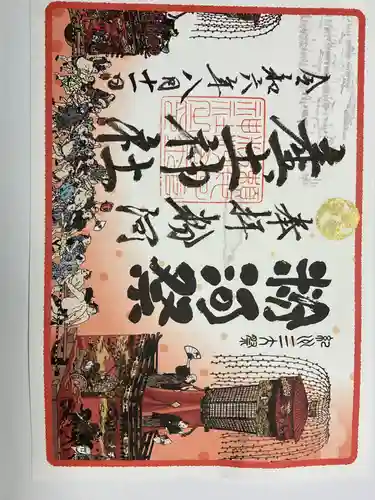 紀州三大祭
粉河祭
奉拝 粉河
産土神社
令和六年八月十一日